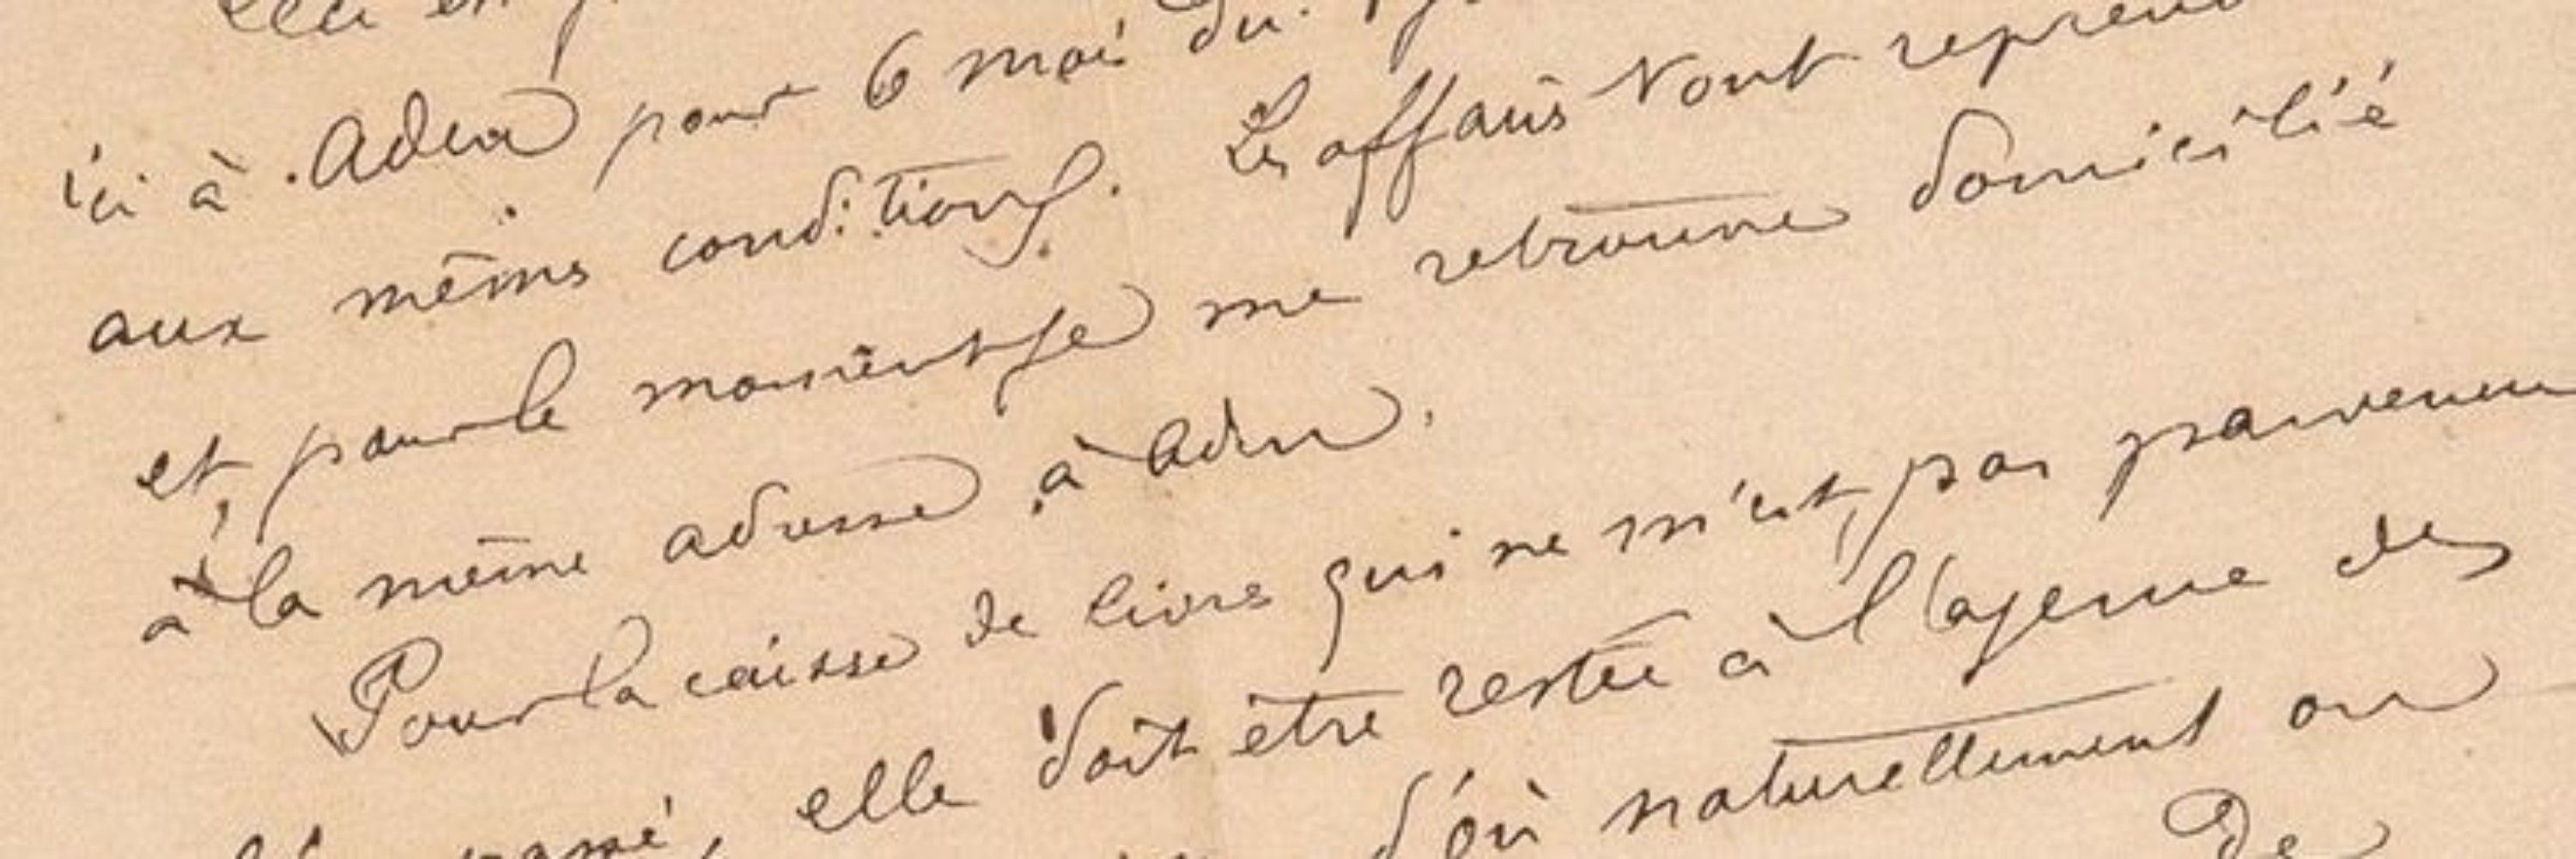 ici à Aden pour 6 mois du
aux mêmes conditions. Les affaires vont
et pour le moment je me retrouve domicilié
à la même adresse, à Aden.
Pour la caisse de livres qui ne m'est pas parvenue
passé, elle doit être restée à l'agence des
d'où naturellement on
de